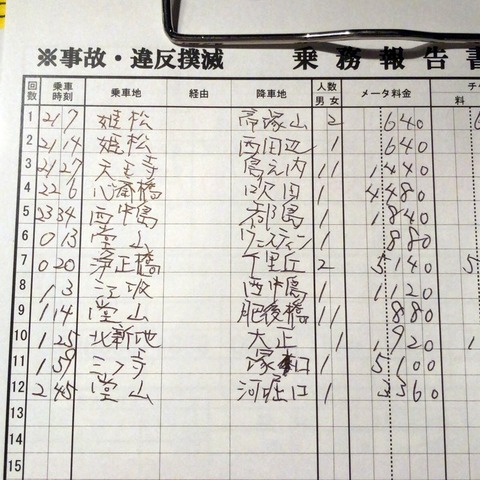 ※事故・違反撲滅 乗務報告書
回数 乗車時刻 乗車地 経由 降車地 人数 男 女 メータ料金 料
1 21 7 姫松 帝塚山 2 640
2 21 14 姫松 西田辺 1 640
3 21 27 天王寺 島之内 1 1 1440
4 22 6 心斎橋 吹田 1 4480
5 23 34 西中島 都島 1 1840
6 0 13 堂山 ウェスティン 1 880
7 0 20 浄正橋 千里丘 2 5140 5
8 1 3 江坂 西中島 1 1120
9 1 14 堂山 肥後橋 1 1 880
10 1 25 北新地 大正 1 1920 1
11 1 59 ミナミ 塚口 1 5100
12 2 45 堂山 河堀口 1 3360
13
14
15